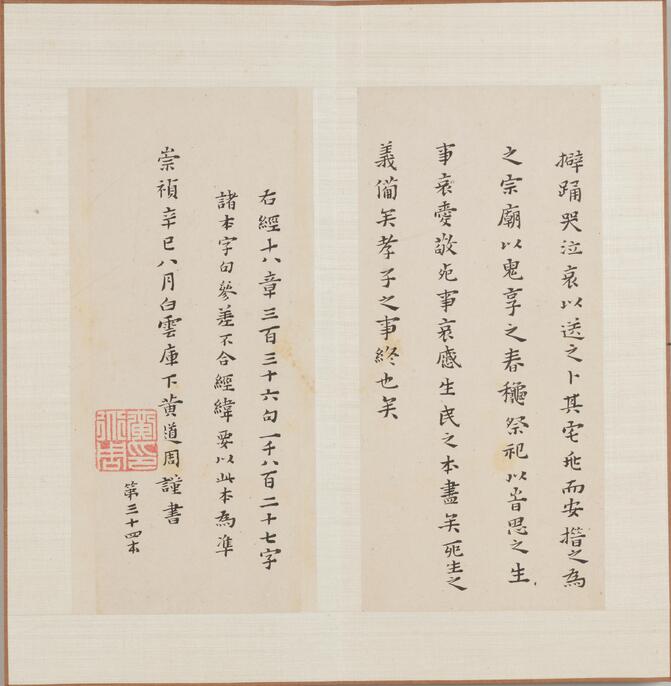 擗踊哭泣哀以送之卜其宅兆而安措之為
之宗廟以鬼享之春穐祭祀以旹思之生
事哀愛敬死事哀慼生民之本盡矣死生之
義備矣孝子之事終也矣
右經十八章三百三十六句一千八百二十七字
諸本字句參差不合經緯要以此本為準
崇禎辛巳八月白雲庫下黃道周謹書
第三十四本
黃道周印